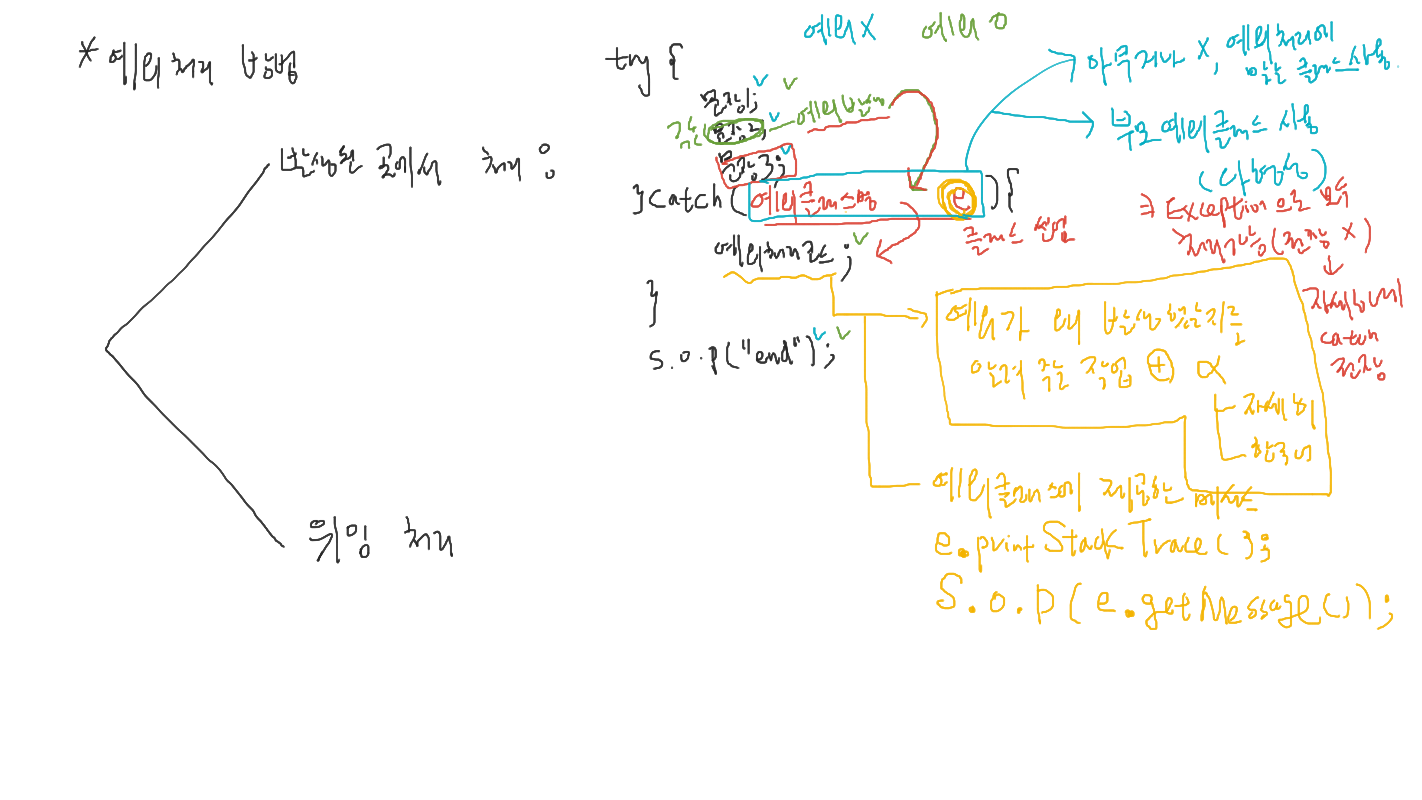 * 예외처리 방법
발생된 곳에서 처리 :
위임 처리
예외 X
예외 O
try {
문장1;
문장2;
예외발생
문장3;
}catch(예외클래스명 e){
클래스 선언
예외처리코드;
}
s.o.p("end");
아무거나 X, 예외처리에
맞는 클래스사용.
부모 예외클래스 사용
(다형성)
⇒ Exception으로 모두
처리가능(권장 X)
자세하게
catch
권장
예외가 왜 발생했는지를
알려 주는 작업 ⊕ α
자세히
한국어
예외클래스에 제공하는 메서드
e.printStackTrace();
S.o.p(e.getMessage());